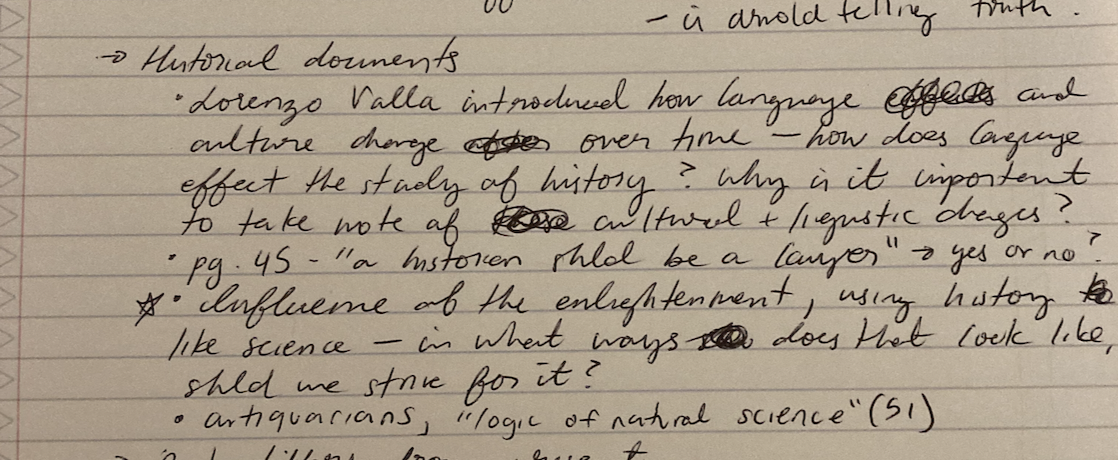 - is arnold telling truth.
→ Historical documents
• Lorenzo Valla introduced how language and
culture change over time – how does language
effect the study of history? Why is it important
to take note of cultural + liguistic changes?
• pg. 45 - "a historian shld be a lawyer" → yes or no?
☆ • Influence of the enlightenment, using history
like science – in what ways does that look like,
shld we strive for it?
• antiquarians, "logic of natural science" (51)